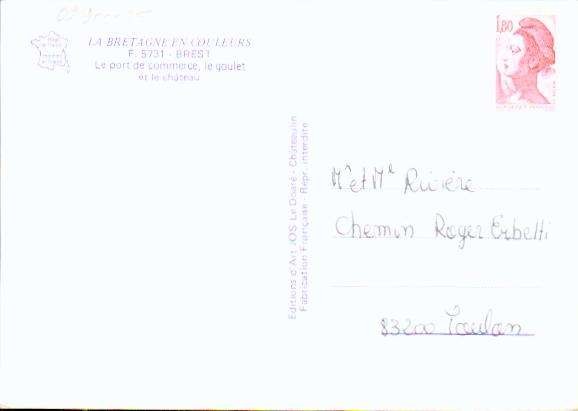 LA BRETAGNE EN COULEURS
F. 5731 - BREST
Le port de commerce, le goulet
et le château
1,80
Editions d'Art JOS Le Doaré - Châteaulin
Fabrication Française - Repr. interdite
Mr et Me Rivière
Chemin Roger Erbetti
83200 Toulon